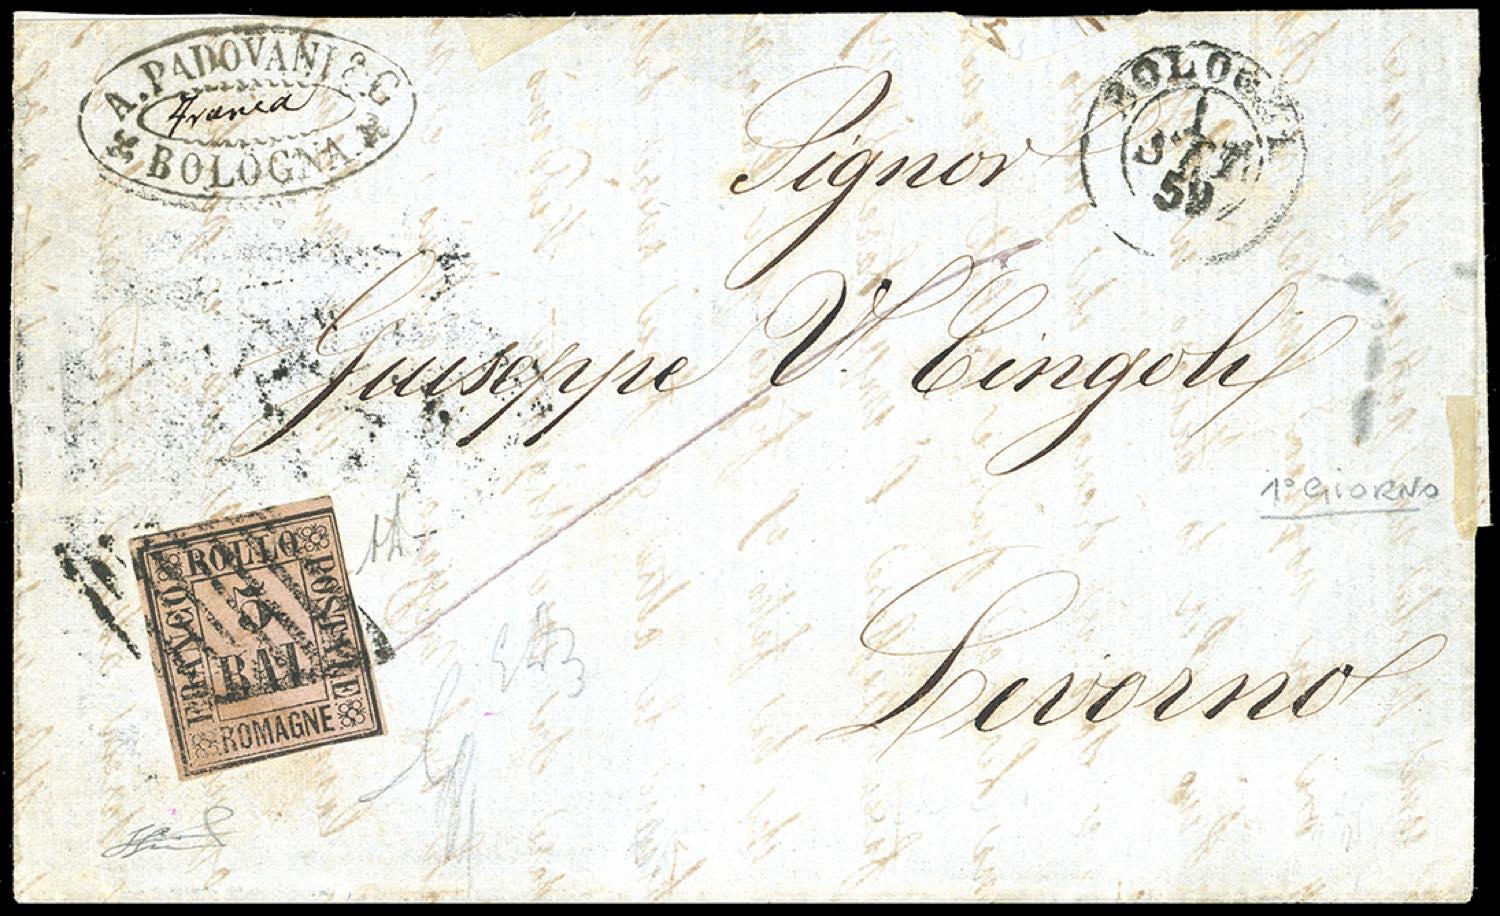 A. PADOVANI & C
Franca
BOLOGNA
BOLOGNA
1
SET
59
Signor
Giuseppe V. Cingoli
1° GIORNO
Livorno
FRANCO BOLLO POSTALE
5
BAI
ROMAGNE